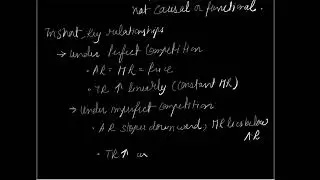 not causal or functional.
In short, key relationships
→ Under Perfect Competition
• AR = MR = Price
• TR ↑ linearly (constant MR)
→ Under imperfect competition
• AR slopes downward; MR lies below AR
• TR ↑